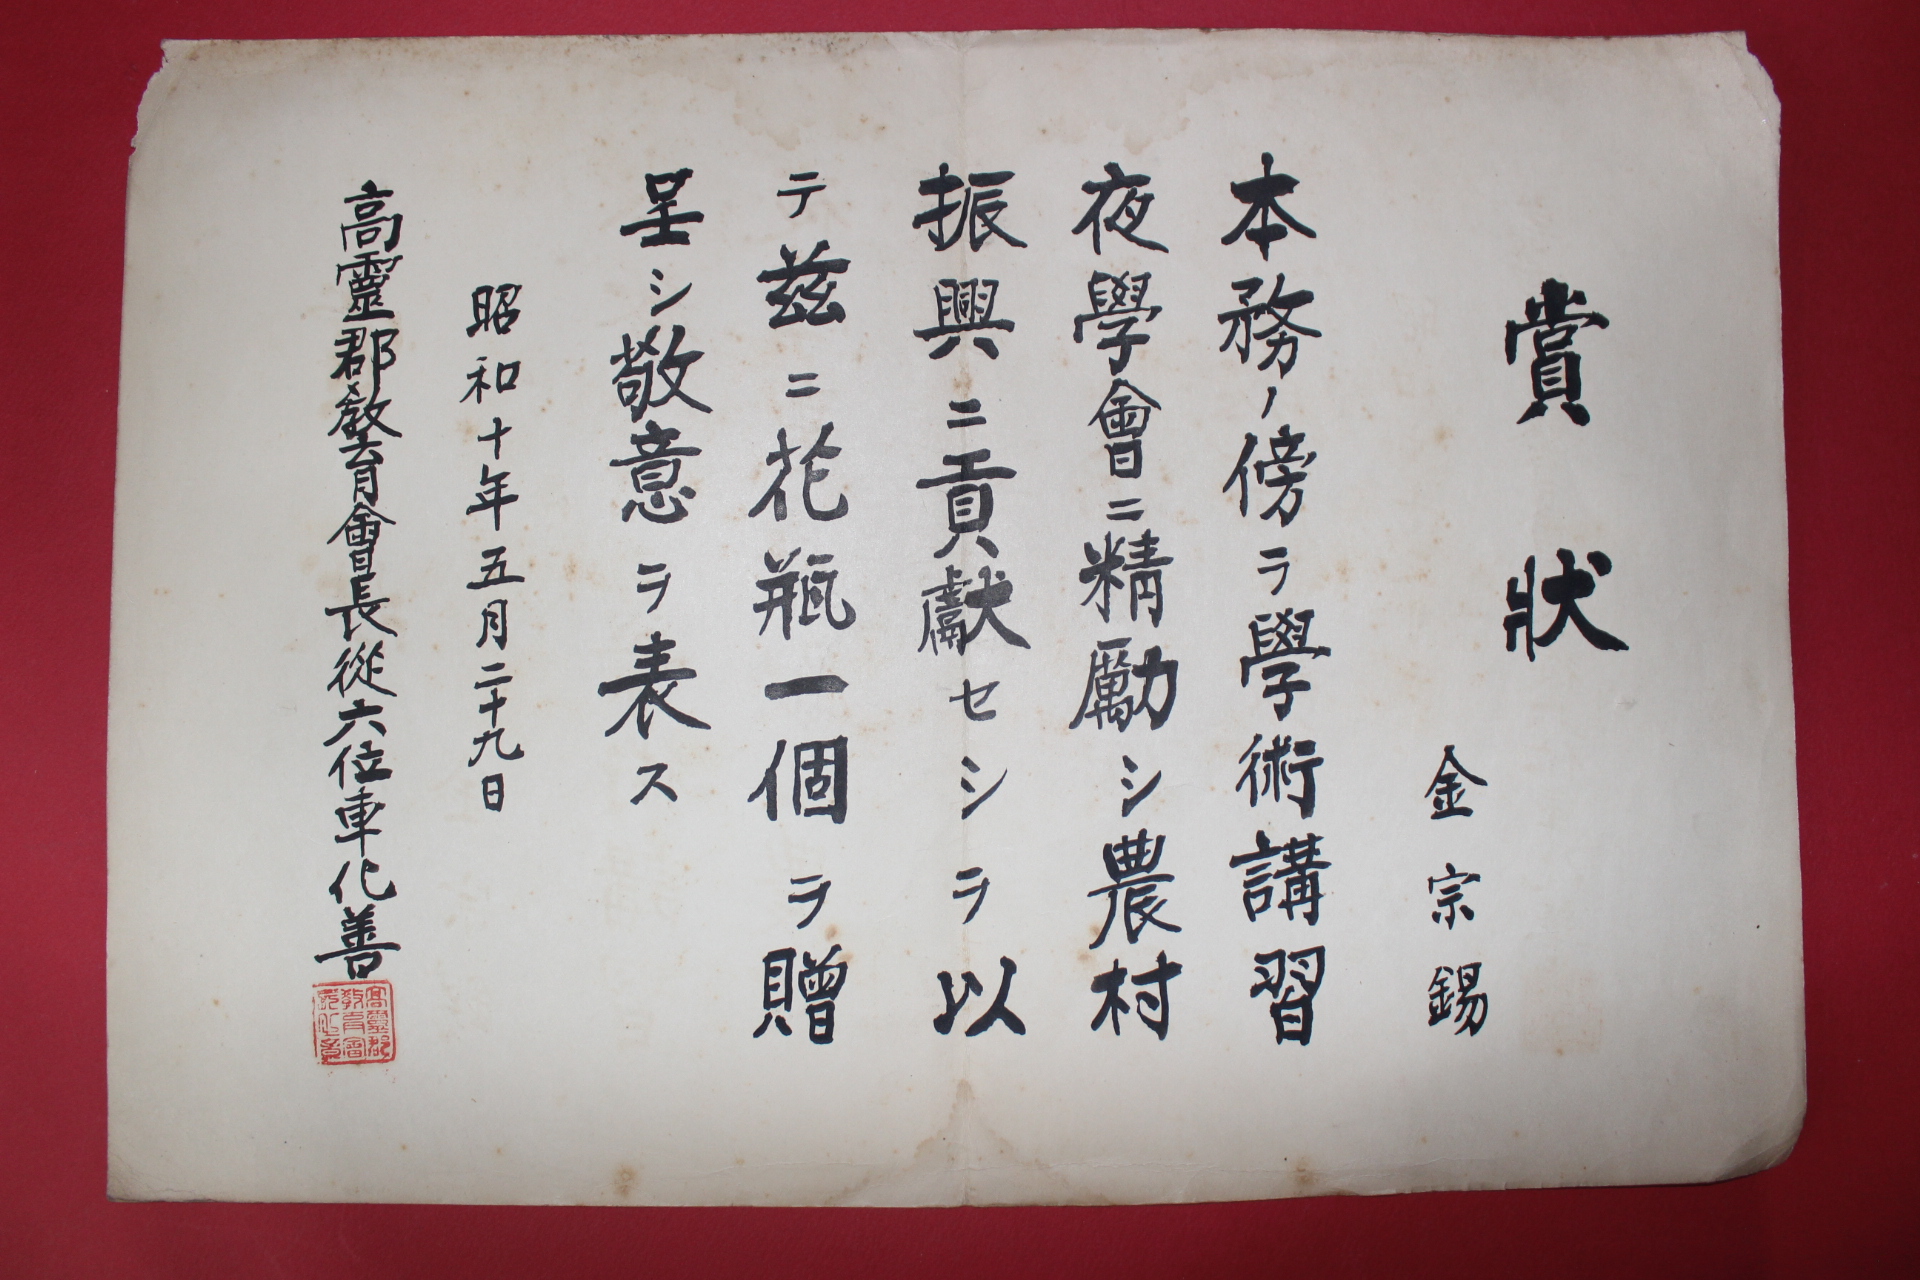 賞狀
金宗錫
本務ノ傍ラ學術講習
夜學會ニ精勵シ農村
振興ニ貢献セシヲ以
テ茲ニ花瓶一個ヲ贈
呈シ敬意ヲ表ス
昭和十年五月二十九日
高靈郡敎育會長從六位車化善
高靈郡
敎育會
長之章